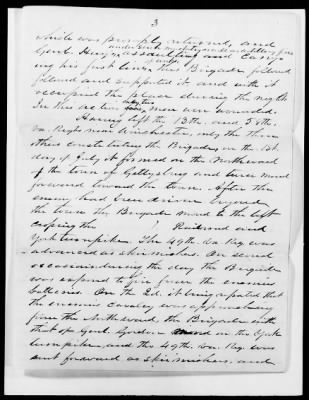 3
which was promptly returned, and
under both musketry and artillery fire
Genl. Hays, assaulting and carry-
ing his first line, this Brigade followed
followed and supported it and with it
occupied the place during the night
only two
In this action men were wounded.
Having left the 13th. and 58th.
Va. Regts near Winchester, only the three
others constituting the Brigade, on the 1st.
day of July it formed on the North ward
of the town of Gettysburg and were moved
forward toward the town. After the
enemy had been driven beyond
the town the Brigade moved to the left
Railroad and
York turnpike. The 49th. Va. Reg. was
advanced as skirmishers. On several
occasions during the day the Brigade
was exposed to fire from the enemies
batteries. On the 2d. it being reported that
the enemies cavalry was approaching
from the Northward, the Brigade with
that of Genl. Gordon moved on the York
turnpike, and the 49th. Va. Reg. was
sent forward as skirmishers, and